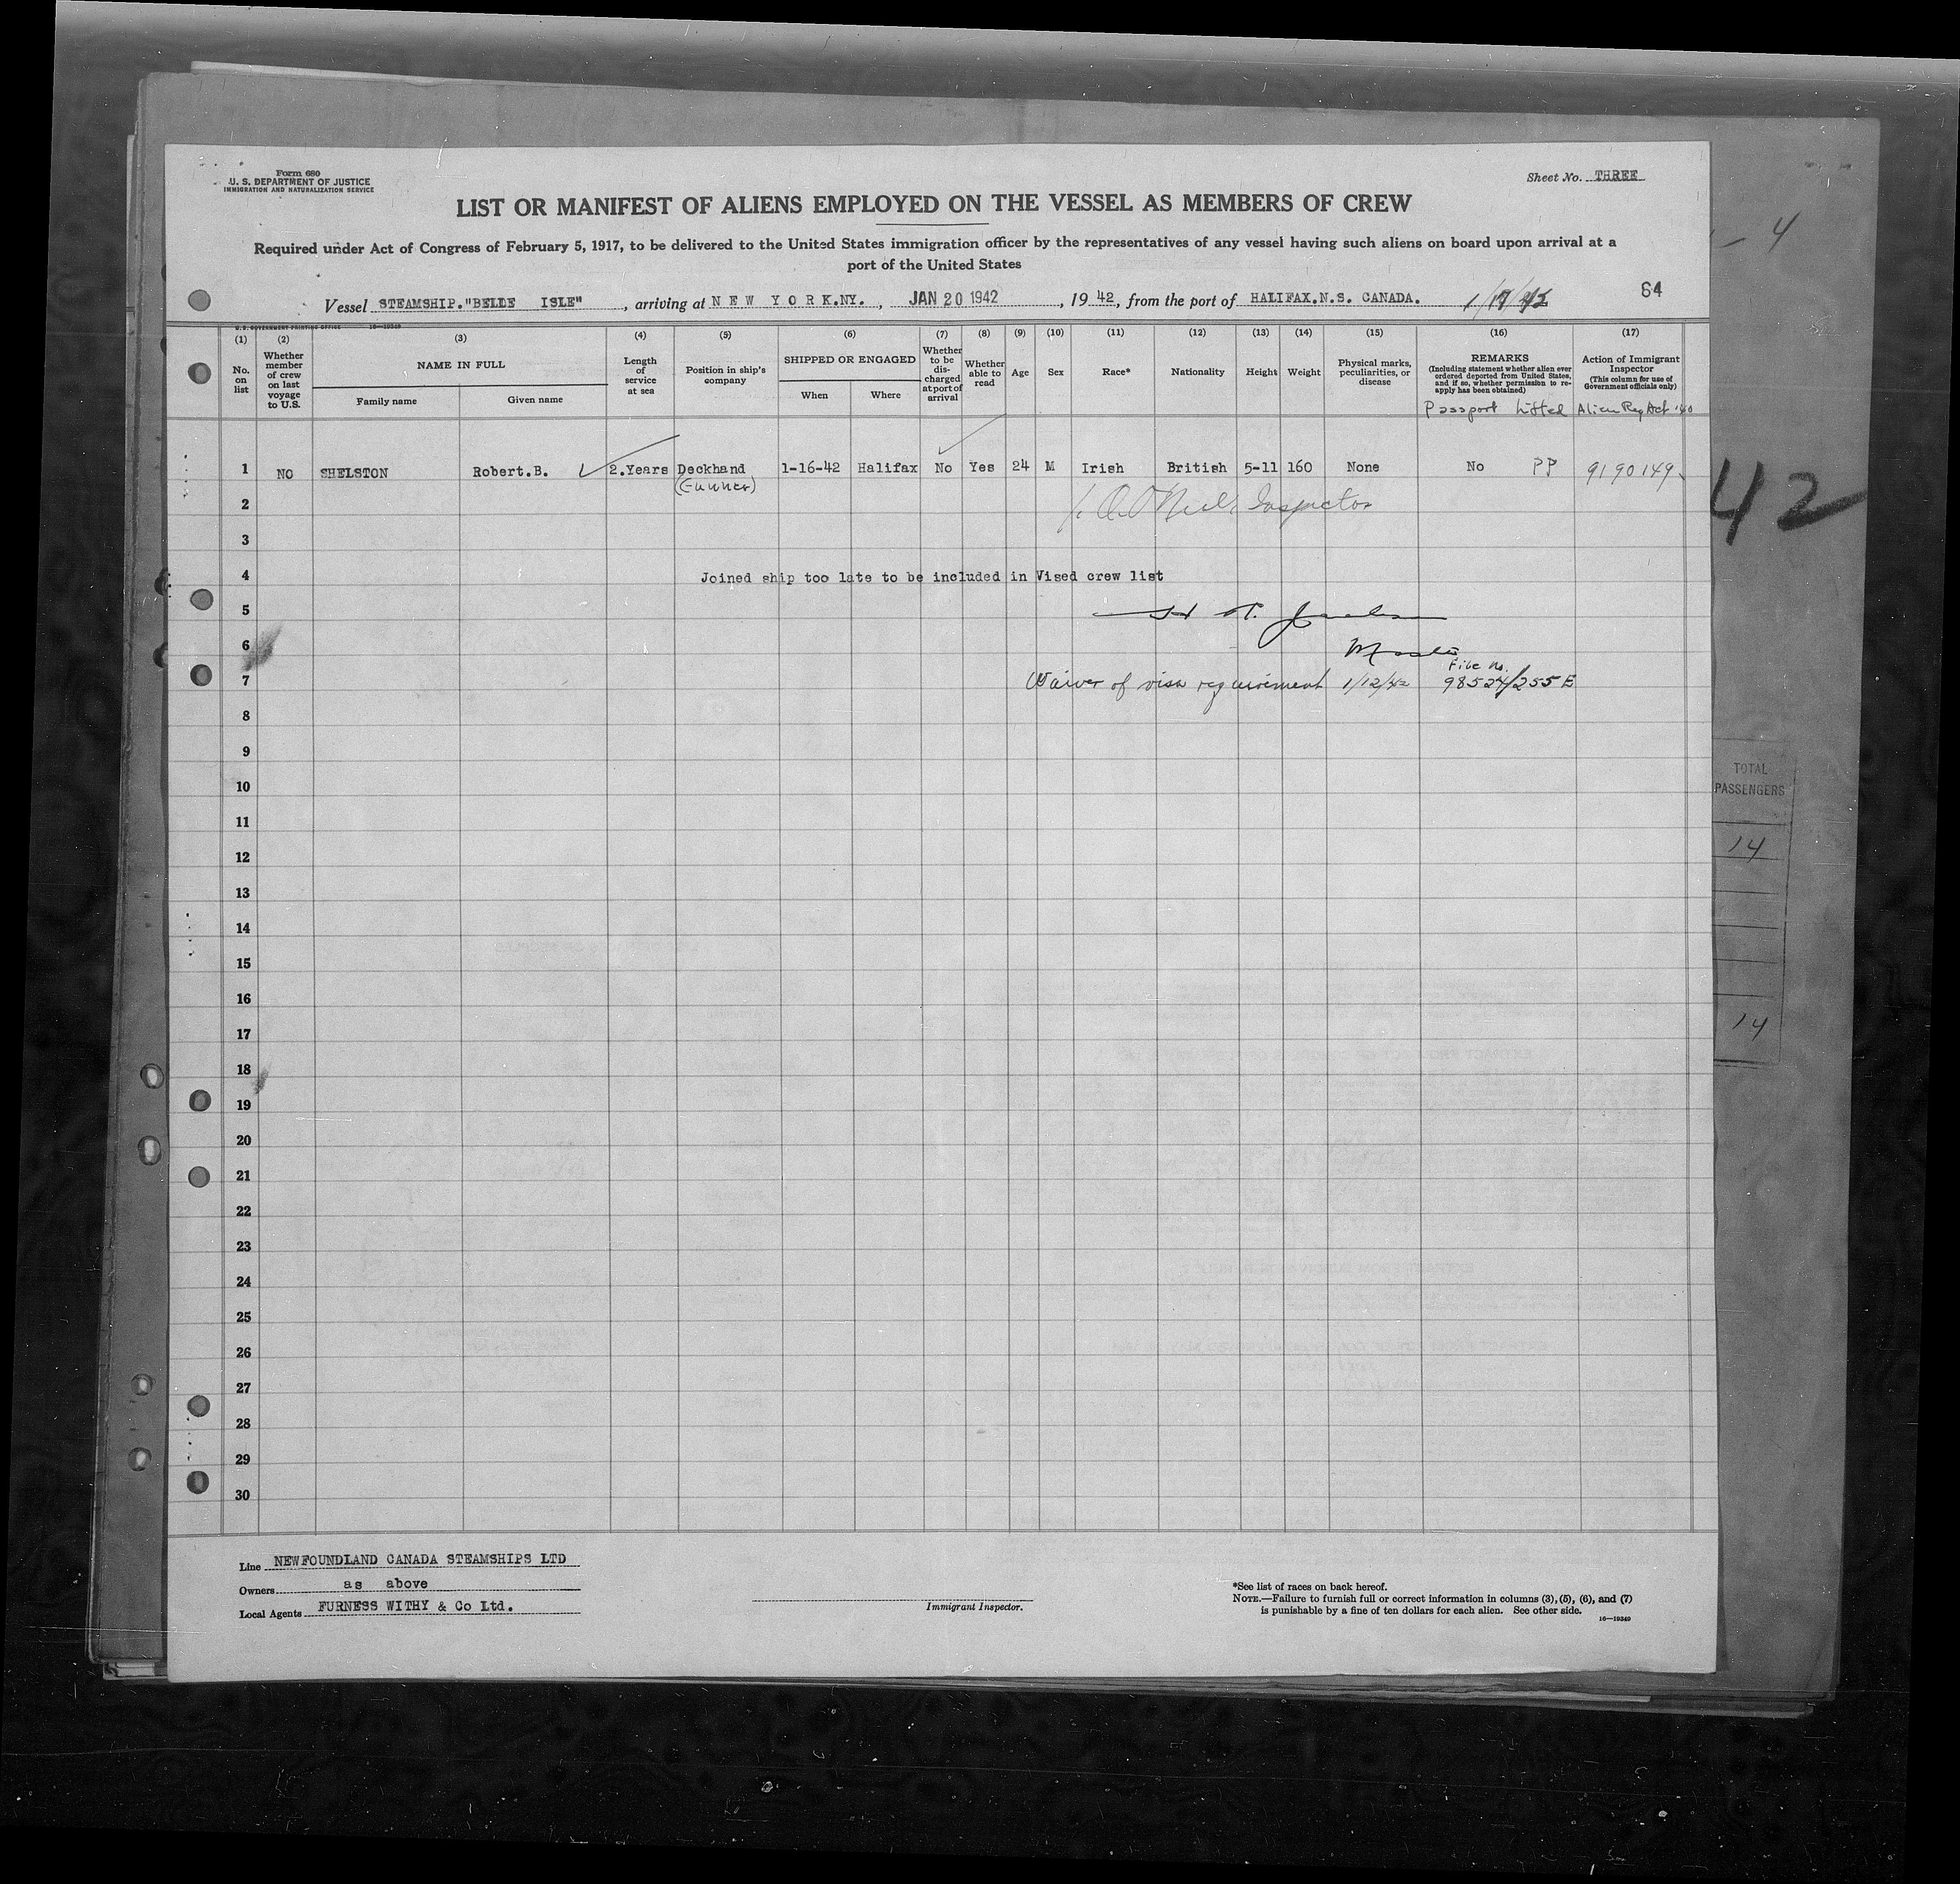 Form 680
U. S. DEPARTMENT OF JUSTICE
IMMIGRATION AND NATURALIZATION SERVICE
Sheet No. THREE
LIST OR MANIFEST OF ALIENS EMPLOYED ON THE VESSEL AS MEMBERS OF CREW
Required under Act of Congress of February 5, 1917, to be delivered to the United States immigration officer by the representatives of any vessel having such aliens on board upon arrival at a
port of the United States
Vessel STEAMSHIP."BELLE ISLE" , arriving at N E W Y O R K.NY. , JAN 20 1942 , 19 42, from the port of HALIFAX.N.S. CANADA. 64
U.S. GOVERNMENT PRINTING OFFICE 16—19349
(1) No. on list
(2) Whether member of crew on last voyage to U.S.
(3) NAME IN FULL
Family name Given name
(4) Length of service at sea
(5) Position in ship's company
(6) SHIPPED OR ENGAGED
When Where
(7) Whether to be discharged at port of arrival
(8) Whether able to read
(9) Age
(10) Sex
(11) Race*
(12) Nationality
(13) Height
(14) Weight
(15) Physical marks, peculiarities, or disease
(16) REMARKS
(Including statement whether alien ever ordered deported from United States, and if so, whether permission to re-apply has been obtained)
Passport Lifted
(17) Action of Immigrant Inspector
(This column for use of Government officials only)
Alien Reg Act '40
1 NO SHELSTON Robert.B. 2.Years Deckhand 1-16-42 Halifax No Yes 24 M Irish British 5-11 160 None No PP 9190149
(Gunner)
2 Inspector
3
4 Joined ship too late to be included in Vised crew list
5
6 Master
File No.
7 Waiver of visa requirement 1/12/42 98524/255 E
8
9
10
11
12
13
14
15
16
17
18
19
20
21
22
23
24
25
26
27
28
29
30
Line NEWFOUNDLAND CANADA STEAMSHIPS LTD
Owners as above
Local Agents FURNESS WITHY & Co Ltd.
Immigrant Inspector.
*See list of races on back hereof.
NOTE.—Failure to furnish full or correct information in columns (3), (5), (6), and (7)
is punishable by a fine of ten dollars for each alien. See other side.
16—19349
4
42
TOTAL
PASSENGERS
14
14